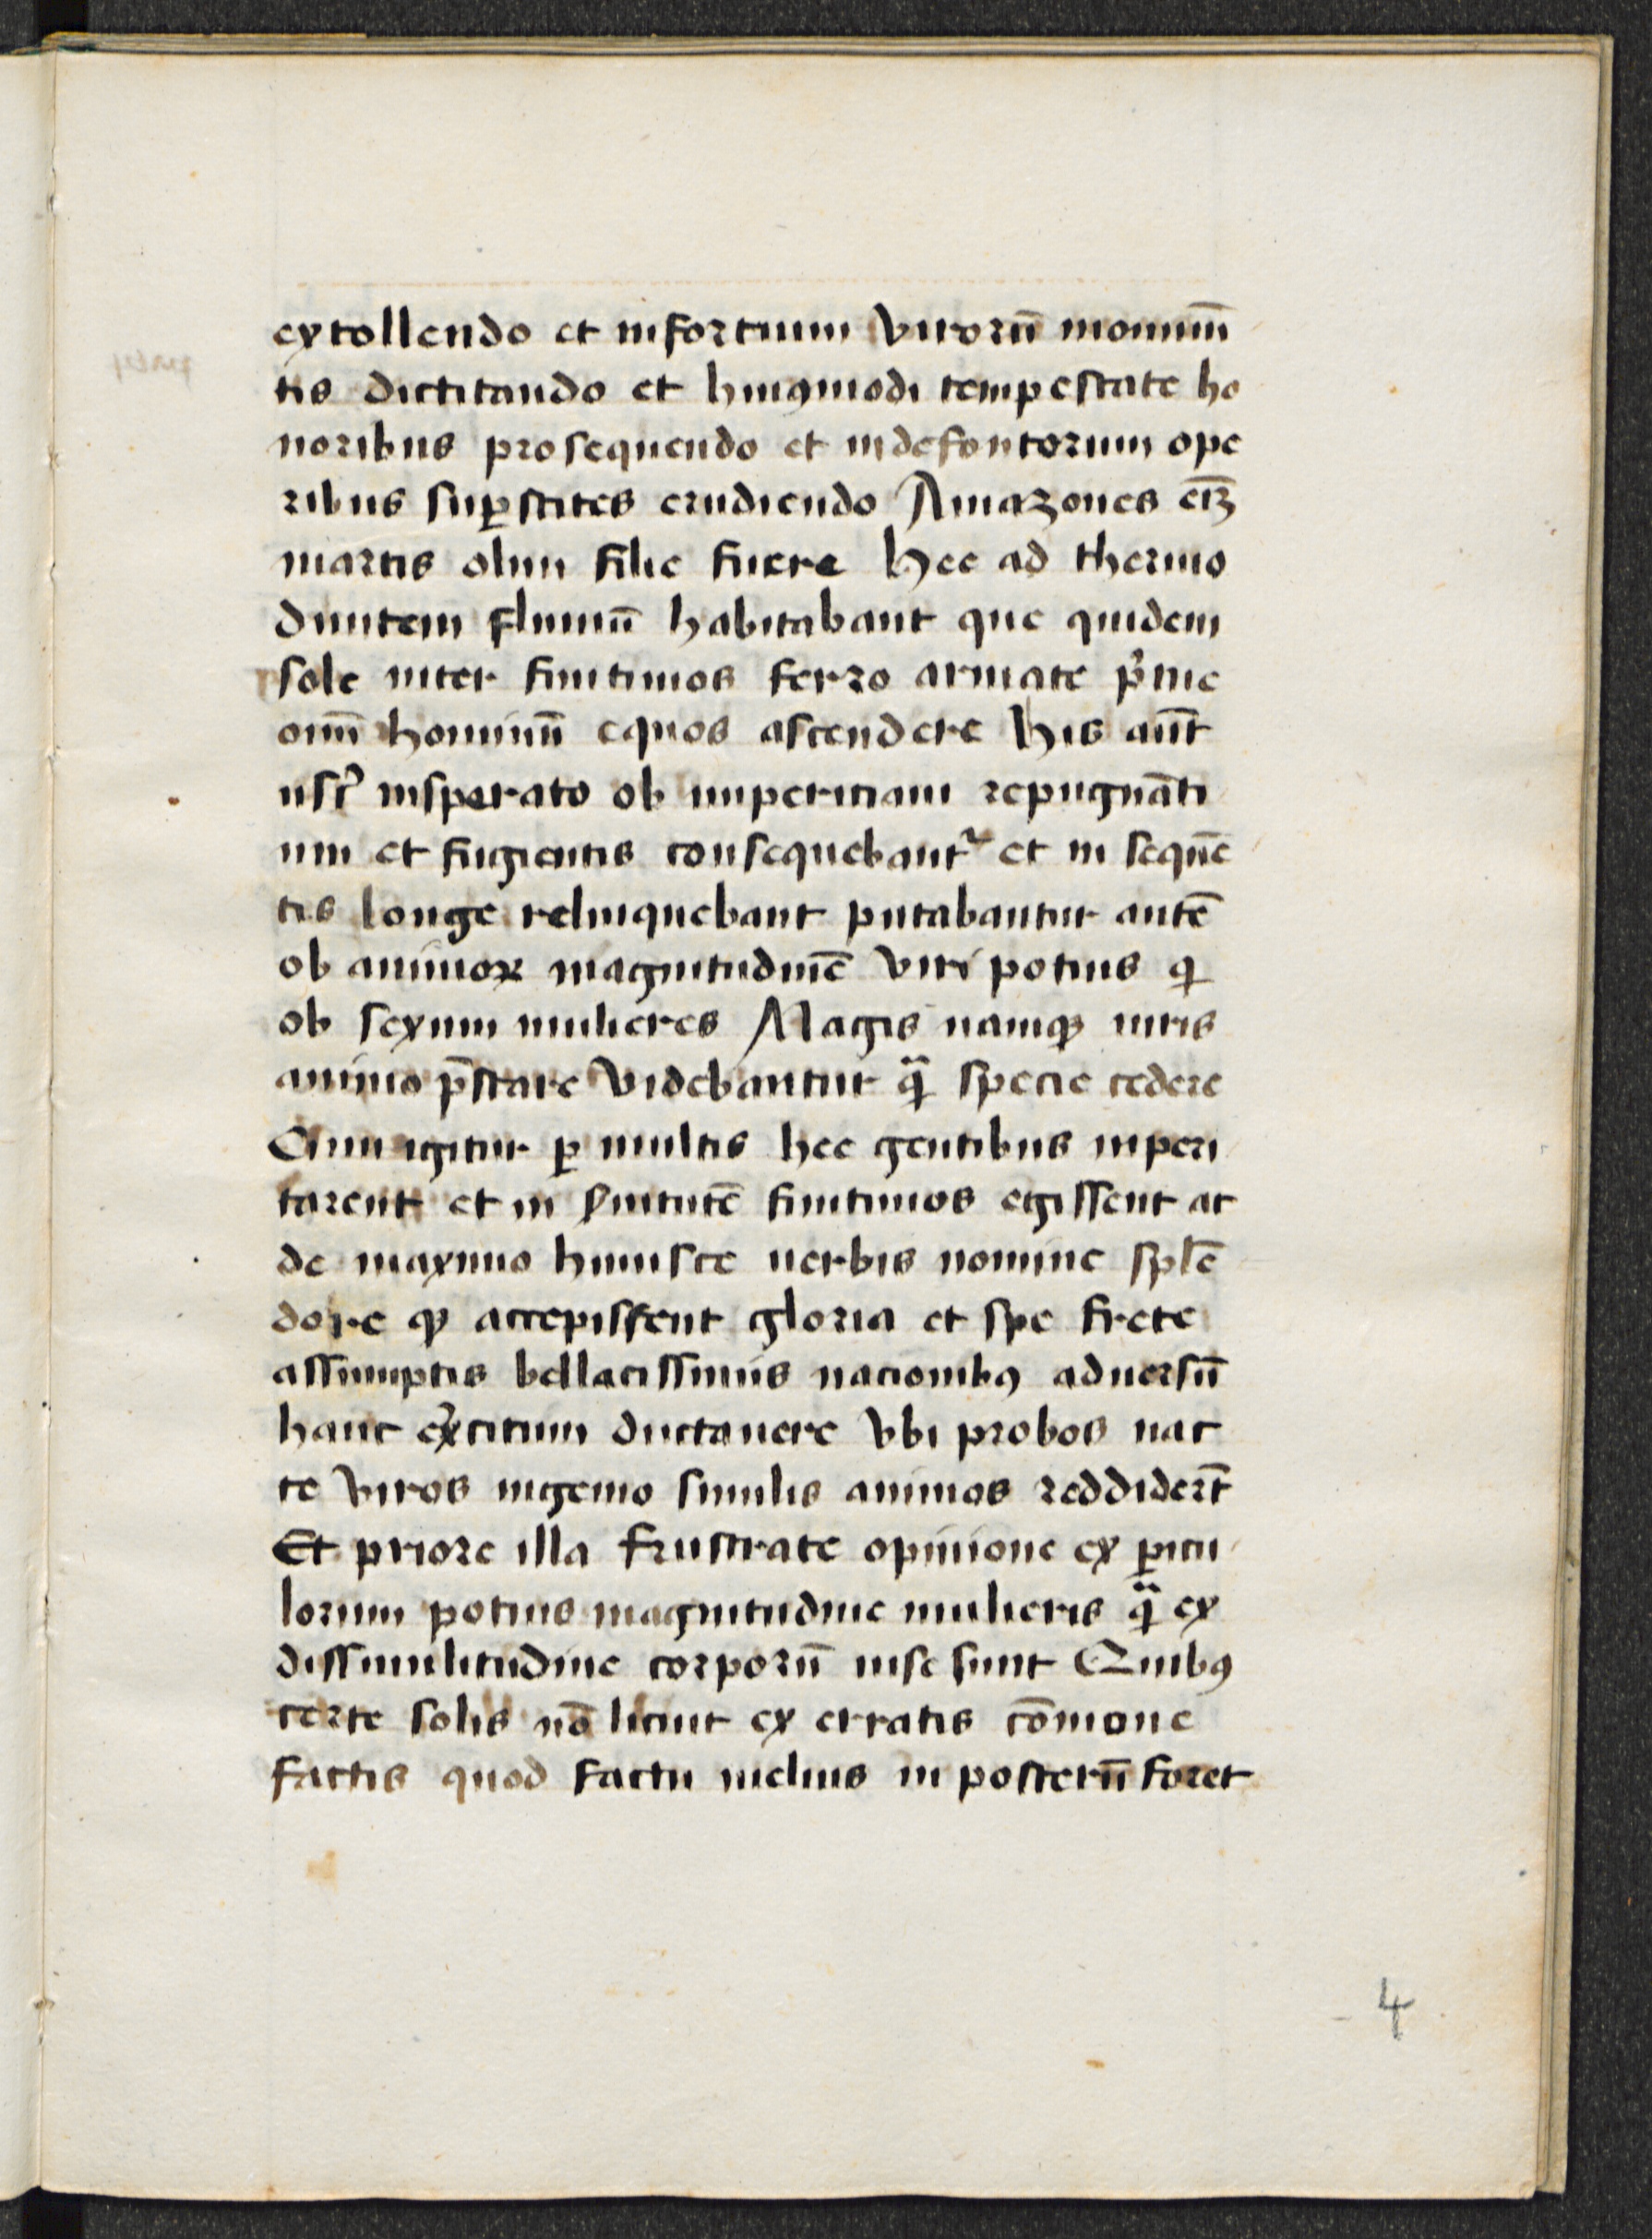 extollendo et infortium virorū monimē
tis dictitando et huiꝯmodi tempestate ho
noribus prosequendo et indefontorum ope
ribus suꝑstites erudiendo Amazones eīꝫ
martis olim filie fuere Hee ad thermo
duntem flumiū habitabant que quidem
sole inter finitimos ferro armate p̓me
omī hominū equos ascendere His aūt
usᷣ insperato ob imperitiam repugnāti
um et fugientis consequebantᷣ et in sequē
tis longe relinquebant putabantur autē
ob animoꝝ magnitudinē viri potius ꝗ
ob sexum mulieres Magis namqꝫ uiris
animo p̄stare videbantur ꝗ̈ specie cedere
Cum igitur ꝑ multis hee gentibus inperi
tarent et in ẜuitutē finitimos egissent at
de maximo huiusce uerbis nomine splē
dore qꝫ accepissent gloria et spe frete
assumptis bellacissimis nacionibꝯ aduersū
hanc ex̓citum ductauere Vbi probos nac
te viros ingenio similis animos reddiderūt
Et priore illa frustrate opinione ex ꝑicu
lorum potius magnitudine mulieris ꝗ̈ ex
dissimilitudine corporū uise sunt Quibꝯ
certe solis nō licuit ex erratis cōmone
factis quod factu melius in posterū foret
4